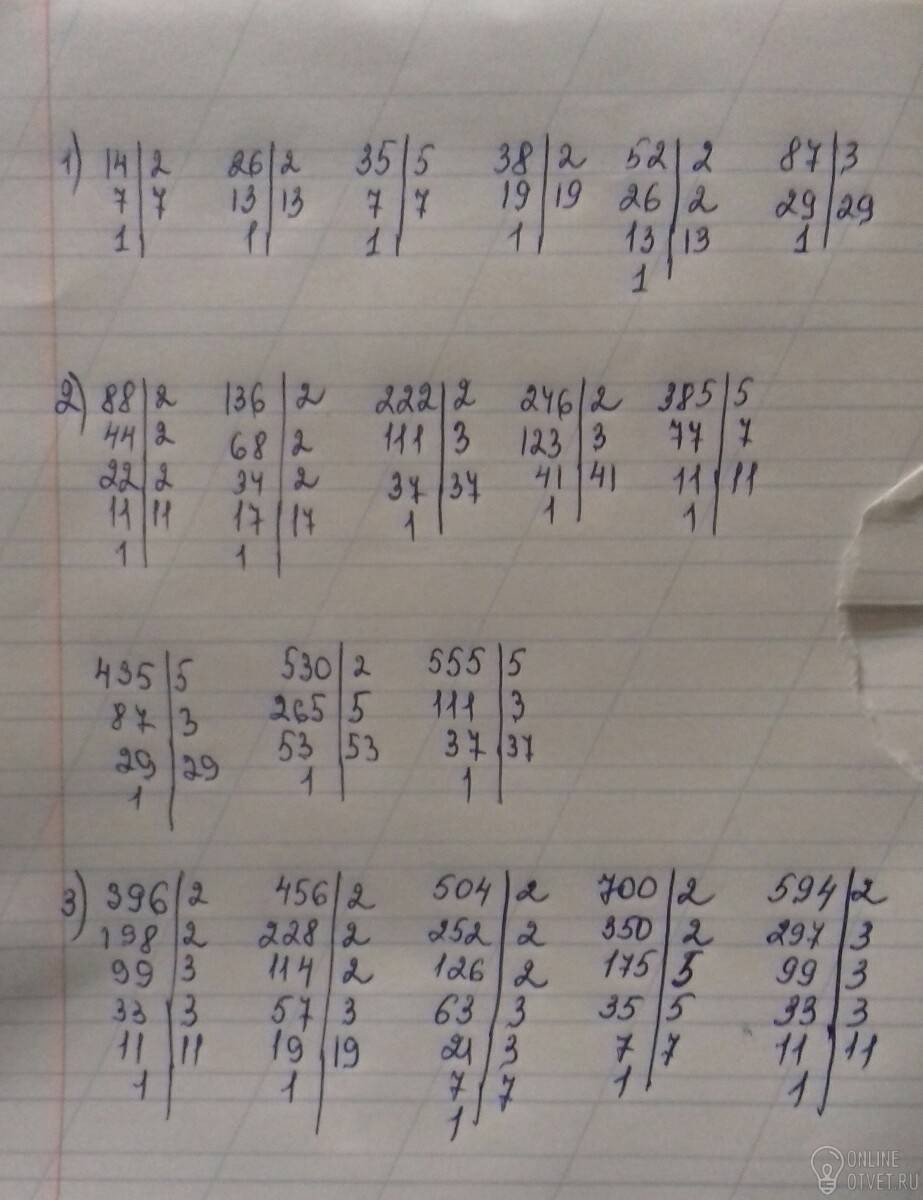 1) 14|2 26|2 35|5 38|2 52|2 87|3
7|7 13|13 7|7 19|19 26|2 29|29
1| 1| 1| 1| 13|13 1|
1|
2) 88|2 136|2 222|2 246|2 385|5
44|2 68|2 111|3 123|3 77|7
22|2 34|2 37|37 41|41 11|11
11|11 17|17 1| 1| 1|
1| 1|
435|5 530|2 555|5
87|3 265|5 111|3
29|29 53|53 37|37
1| 1| 1|
3) 396|2 456|2 504|2 700|2 594|2
198|2 228|2 252|2 350|2 297|3
99|3 114|2 126|2 175|5 99|3
33|3 57|3 63|3 35|5 33|3
11|11 19|19 21|3 7|7 11|11
1| 1| 7|7 1| 1|
1|
ONLINE
OTVET.RU